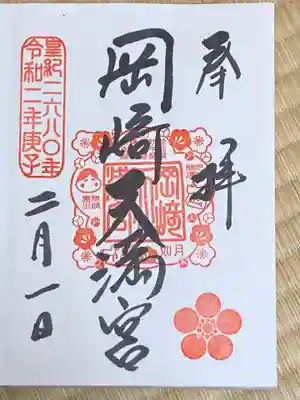 奉拝
岡崎天満宮
岡﨑
如月
皇紀二六八〇年
令和二年庚子
二月一日